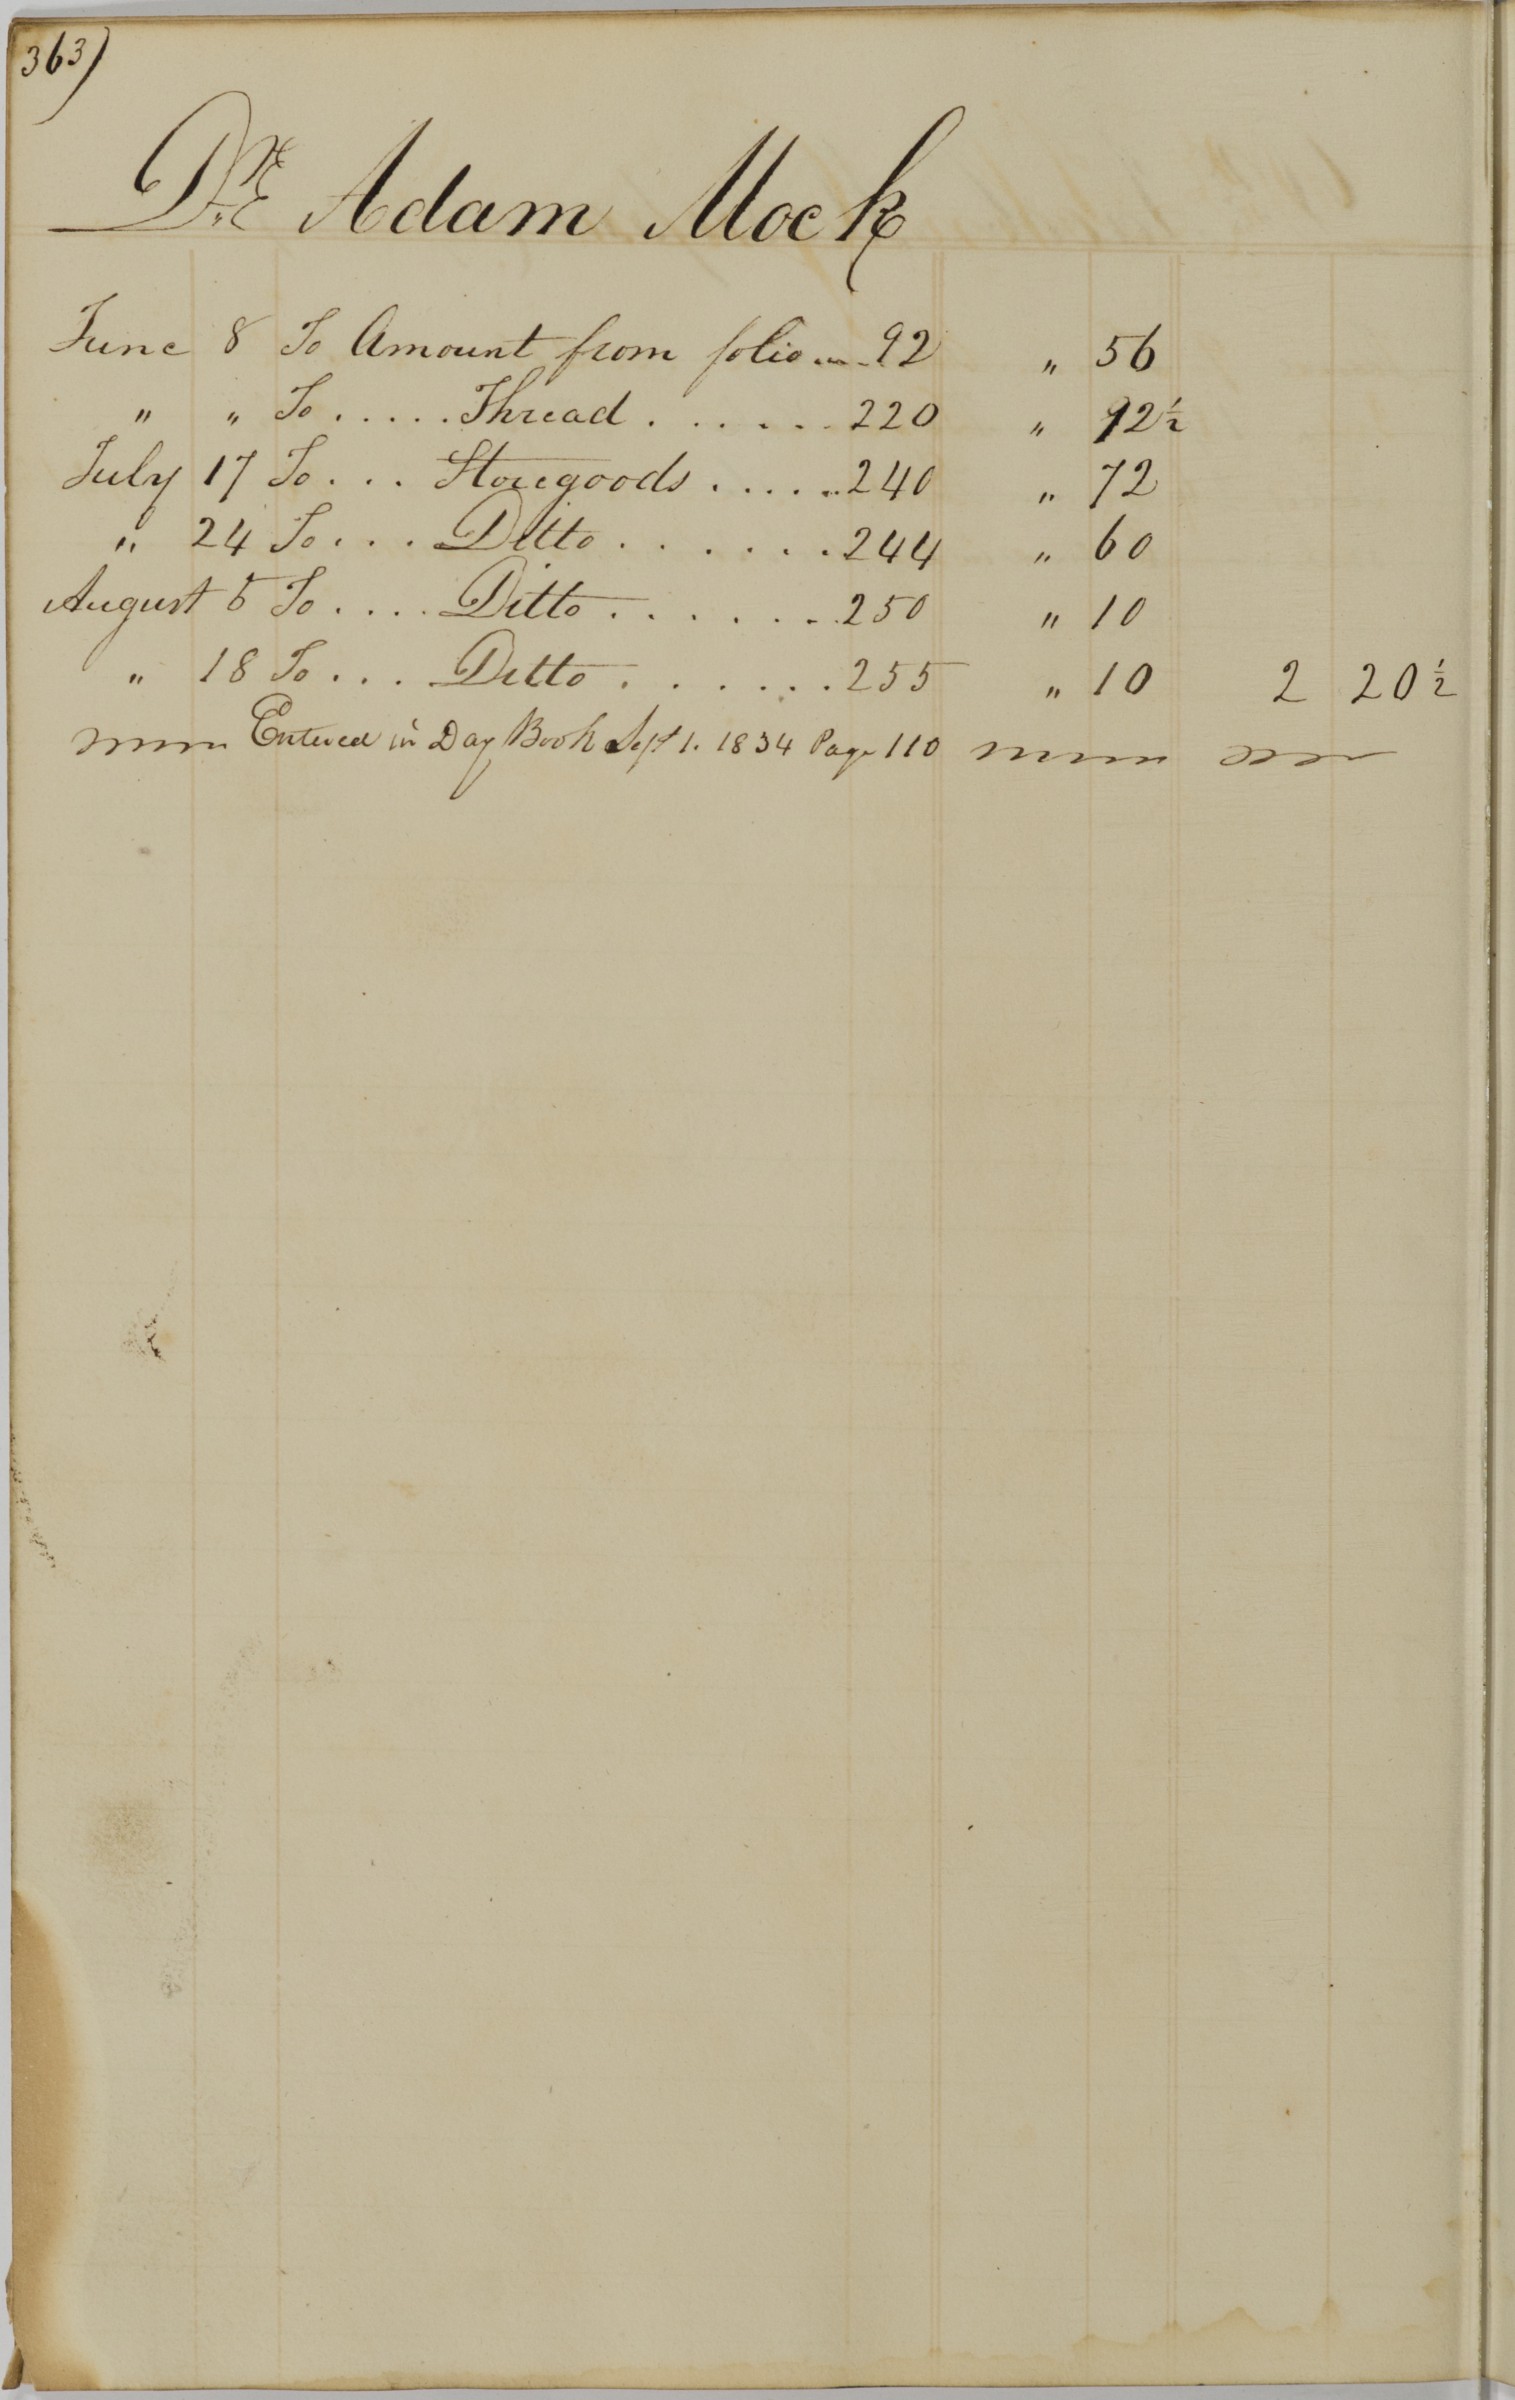 363)
Dr. Adam Mock
June 8 To Amount from folio ... 92 " 56
" " To ..... Thread ...... 220 " 12½
July 17 To ... Storegoods ..... 240 " 72
" 24 To ... Ditto ...... 244 " 60
August 5 To .... Ditto ....... 250 " 10
" 18 To ... Ditto ...... 255 " 10 2 20½
Entered in Day Book Sept 1. 1834 Page 110